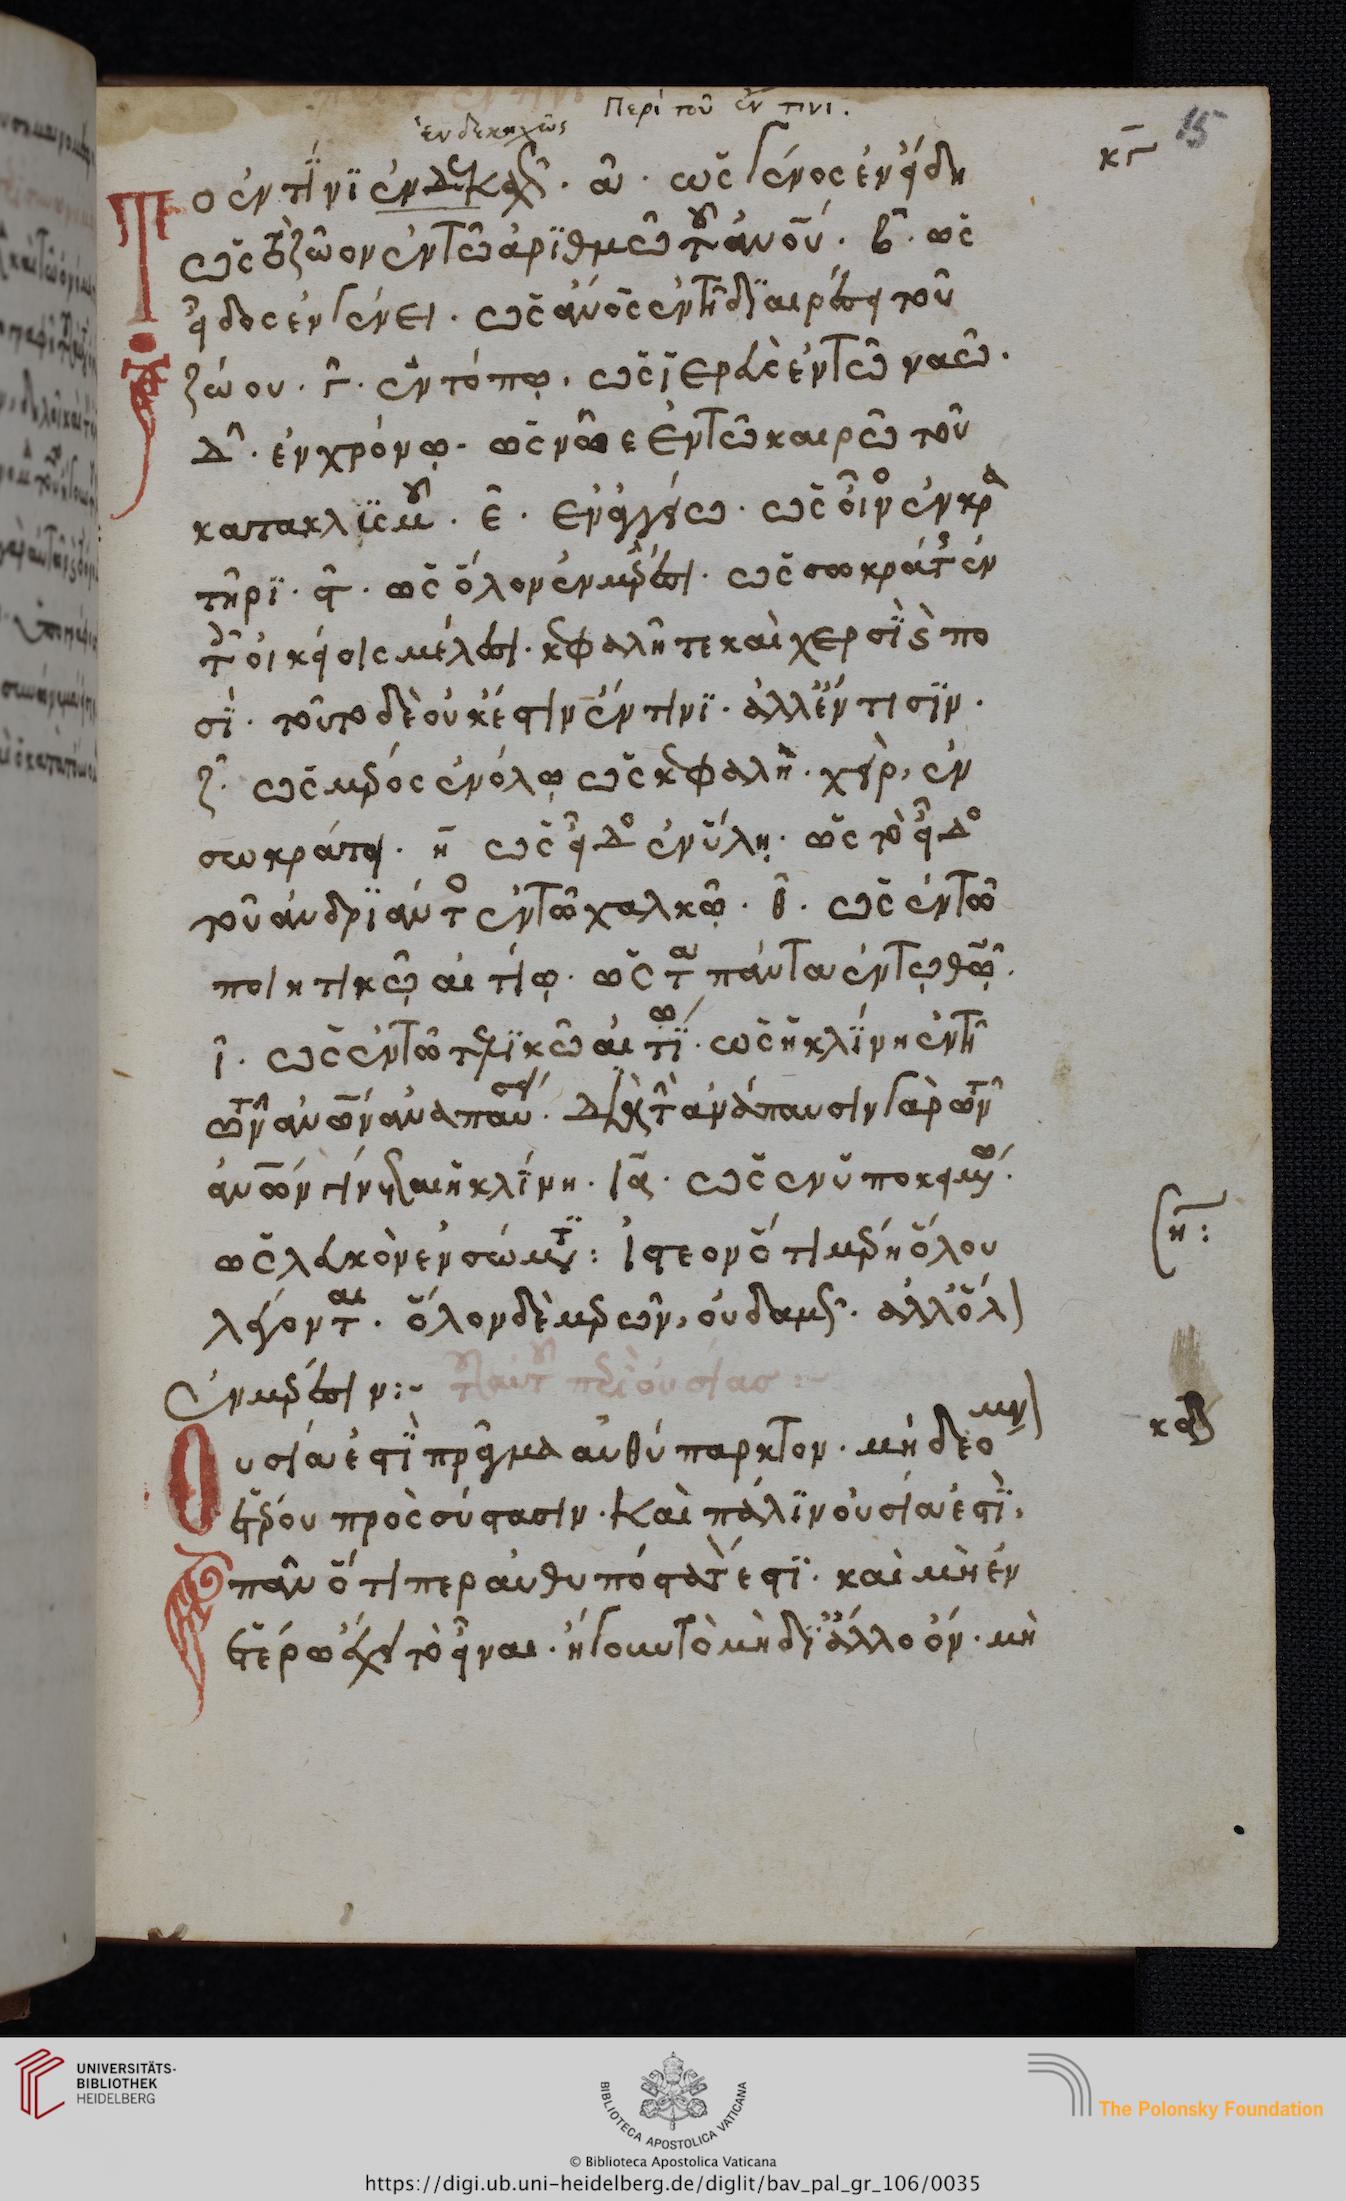 Περὶ τοῦ ἔν τινι.
ἑνδεκαχῶς
15
κγ
Το ἐν τίνϊ ἑνδεκαχῶς. α. ὡς γένος ἐν εἴδη
ὡς τὸ ζῶον ἐν τῶ ἀρϊθμῶ τοῦ ἀνοῦ. β. ὡς
εἶδος ἐν γένει. ὡς ἀνος ἐν τῆ δϊαιρέσει τοῦ
ζώου. γ. ἐν τόπω. ὡς ἱερεὺς ἐν τῶ ναῶ.
δ. ἐν χρόνω. ὡς νῶε ἐν τῶ καιρῶ τοῦ
κατακλϊσμοῦ. ε. ἐν ἀγγείω. ὡς οἶνος ἐν κρα
τῆρϊ. ϛ. ὡς ὅλον ἐν μέρεσι. ὡς σωκράτης ἐν
τοῖς οἰκείοις μέλεσι. κεφαλῆ τε καὶ χερσϊ καὶ πο
σϊ. τοῦτο δὲ οὐκέστιν ἔν τινϊ. ἀλλἔν τισϊν.
ζ. ὡς μέρος ἐν ὅλω ὡς κεφαλὴ. χεὶρ, ἐν
σωκράτει. η ὡς εἶδος ἐν ὕλη. ὡς τὸ εἶδος
τοῦ ἀνδρϊάντος ἐν τῶ χαλκῶ. θ. ὡς ἐν τῶ
ποιητικῶ αἰτίω. ὡς τα πάντα ἐν τῶ θῶ.
ι. ὡς ἐν τῶ τελϊκῶ αἰτϊω. ὡς ἡ κλΐνη ἐν τῆ
τῶν ἀνων ἀναπαύσει. διὰ τὴν ἀνάπαυσιν γὰρ τῶν
ἀνων γίνεται ἡ κλΐνη. ια. ὡς ἐν ὑποκειμένω.
ὡς λευκὸν ἐν σώματϊ: ἰστεον ὅτι μέρη ὅλου
λέγονται. ὅλον δὲ μερῶν, οὐδαμῶς. ἀλλὅλον
ἐν μέρεσιν:~ τοῦ αὐτοῦ περὶ οὐσίας:~
η:
κδ
Ουσία ἐστϊ πρᾶγμα αὐθύπαρκτον. μὴ δεόμενον
ἑτέρου πρὸς σύστασιν. Καὶ πάλϊν οὐσία ἐστϊ,
πᾶν ὅτιπερ αὐθυπόστατόν ἐστϊ. καὶ μὴ ἐν
ἑτέρω ἔχει τὸ εἶναι. ἤγουν τὸ μὴ δϊ ἄλλο ὄν. μὴ
UNIVERSITÄTS-
BIBLIOTHEK
HEIDELBERG
BIBLIOTECA APOSTOLICA VATICANA
The Polonsky Foundation
© Biblioteca Apostolica Vaticana
https://digi.ub.uni-heidelberg.de/diglit/bav_pal_gr_106/0035